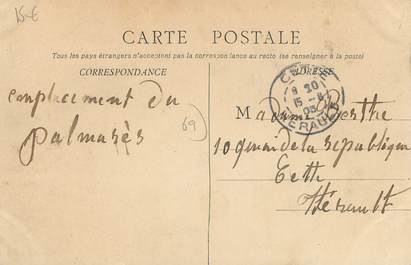 15-€
CARTE POSTALE
Tous les pays étrangers n'acceptent pas la correspondance au recto (se renseigner à la poste)
CORRESPONDANCE
ADRESSE
CETTE
9 20
15 -8
05
HERAULT
emplacement du
palmarès
69
Madame Berthe
10 quai de la République
Cette
Hérault